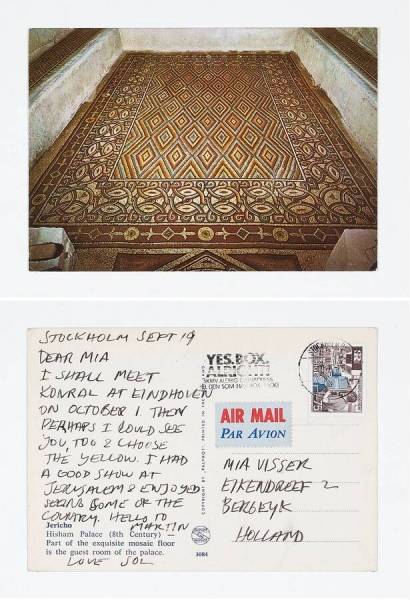 STOCKHOLM SEPT 19
DEAR MIA
I SHALL MEET
KONRAL AT EINDHOLEN
ON OCTOBER 1. THEN
PERHAPS I COULD SEE
YOU, TOO & CHOOSE
THE YELLOW. I HAD
A GOOD SHOW AT
JERUSALEM & ENJOYED
SEEING SOME OF THE
COUNTRY. HELLO TO
MARTIN
Jericho
Hisham Palace (8th Century) —
Part of the exquisite mosaic floor
is the guest room of the palace.
LOVE SOL
COPYRIGHT BY "PALPHOT" PRINTED IN
3084
YES.BOX,
AIR MAIL
PAR AVION
MIA VISSER
EIKENDREEF 2
BERGEYK
HOLLAND